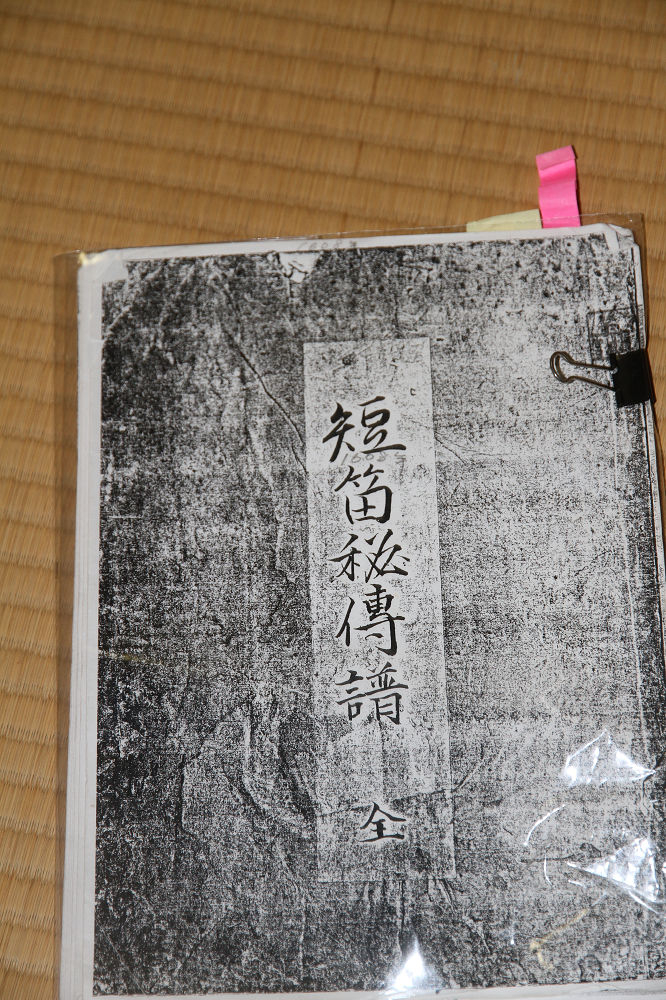 短笛秘傳譜
全